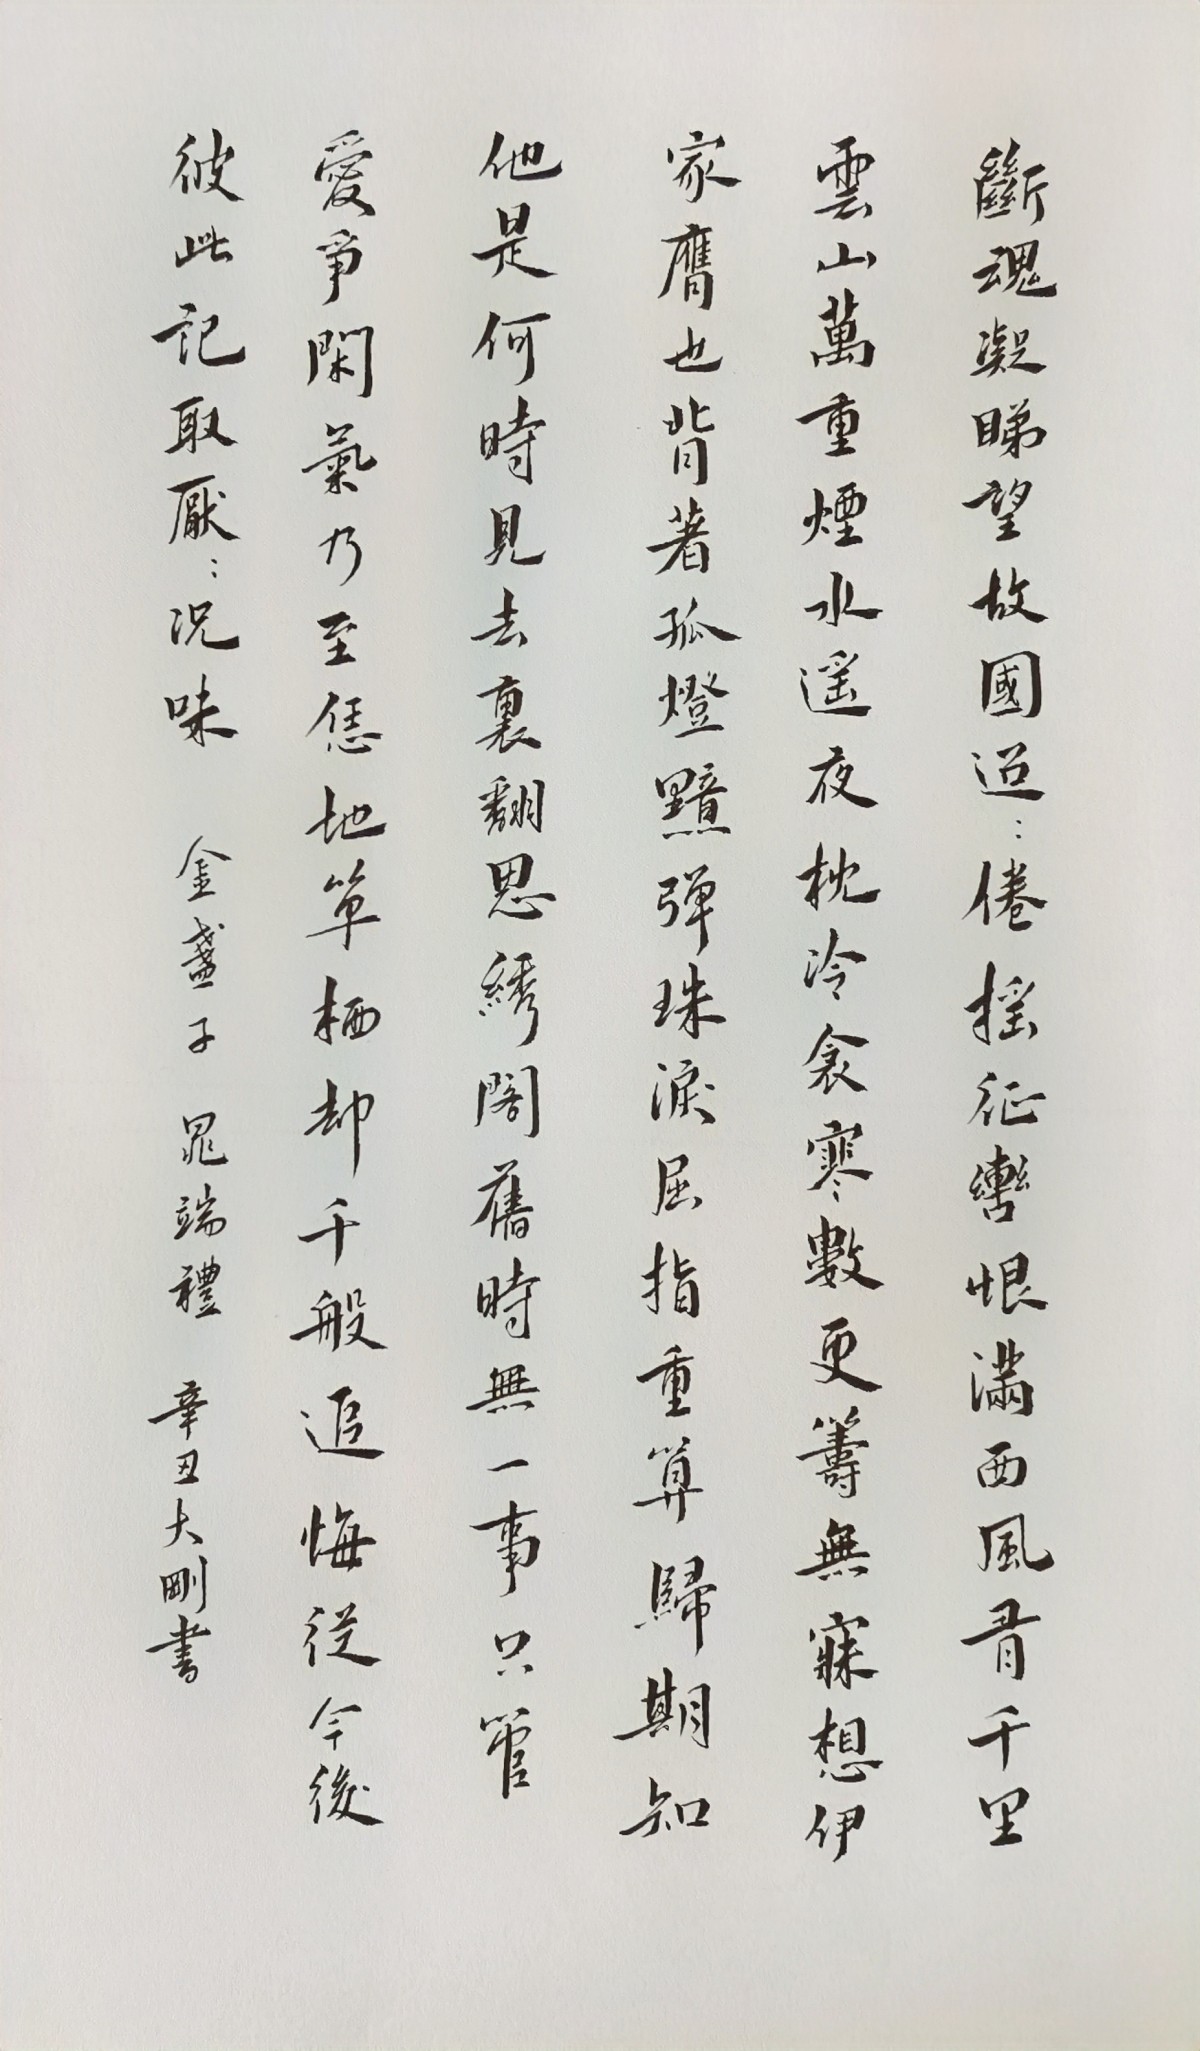 斷魂凝睇望故國迢：倦搖征轡恨滿西風有千里
雲山萬重煙水遥夜枕冷衾寒數更籌無寐想伊
家應也背著孤燈黯彈珠淚屈指重算歸期知
他是何時見去裏翻思綉閣舊時無一事只管
愛爭閑氣乃至恁地單栖却千般追悔從今後
彼此記取厭：况味 金盞子 晁端禮 辛丑大剛書